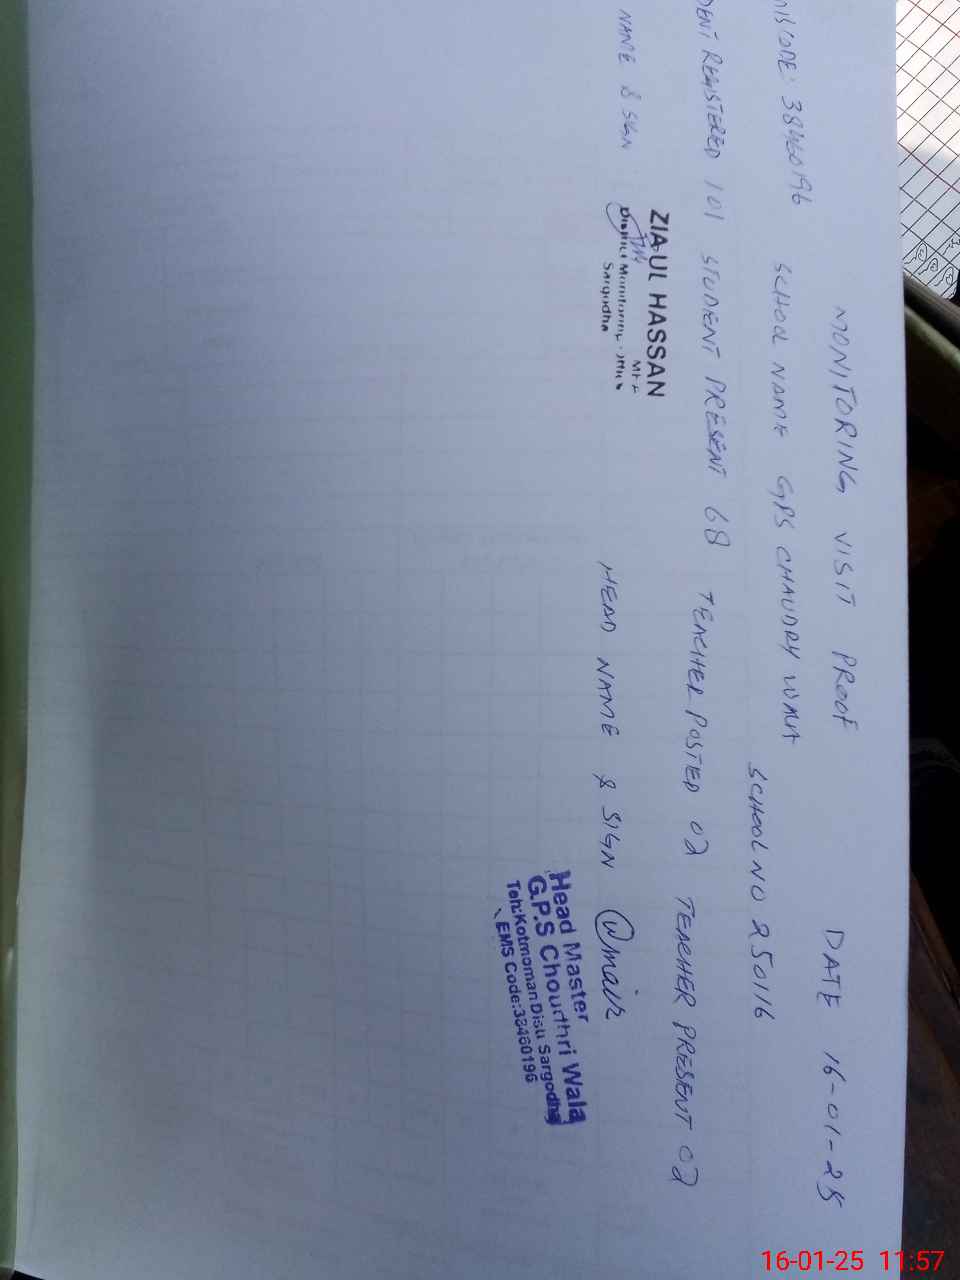 MONITORING VISIT PROOF DATE 16-01-25
CODE: 38460196 SCHOOL NAME GPS CHAUDRY WALA SCHOOL NO 250116
DENT REGISTERED 101 STUDENT PRESENT 68 TEACHER POSTED 02 TEACHER PRESENT 02
NAME & SIGN HEAD NAME & SIGN Umair
ZIA UL HASSAN
District Monitoring
Sargodha
Head Master
G.P.S Choudhri Wala
Teh:Kotmoman Distt Sargodha
EMS Code:38460196
16-01-25 11:57